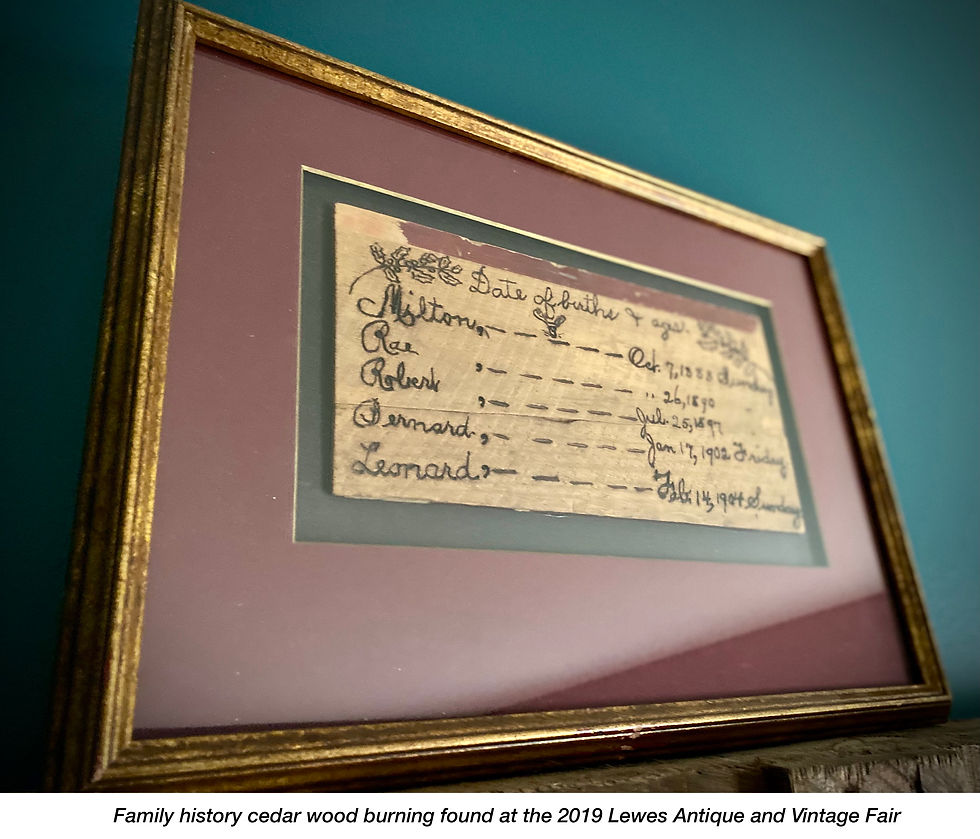 Date of births & ages.
Milton, — — — — — Oct. 7, 1888 Sunday
Rae , — — — — — " 26, 1890
Robert , — — — — — Jul. 25, 1897
Bernard, — — — — — Jan 17, 1902 Friday
Leonard, — — — — — Feb. 14, 1904 Sunday
Family history cedar wood burning found at the 2019 Lewes Antique and Vintage Fair